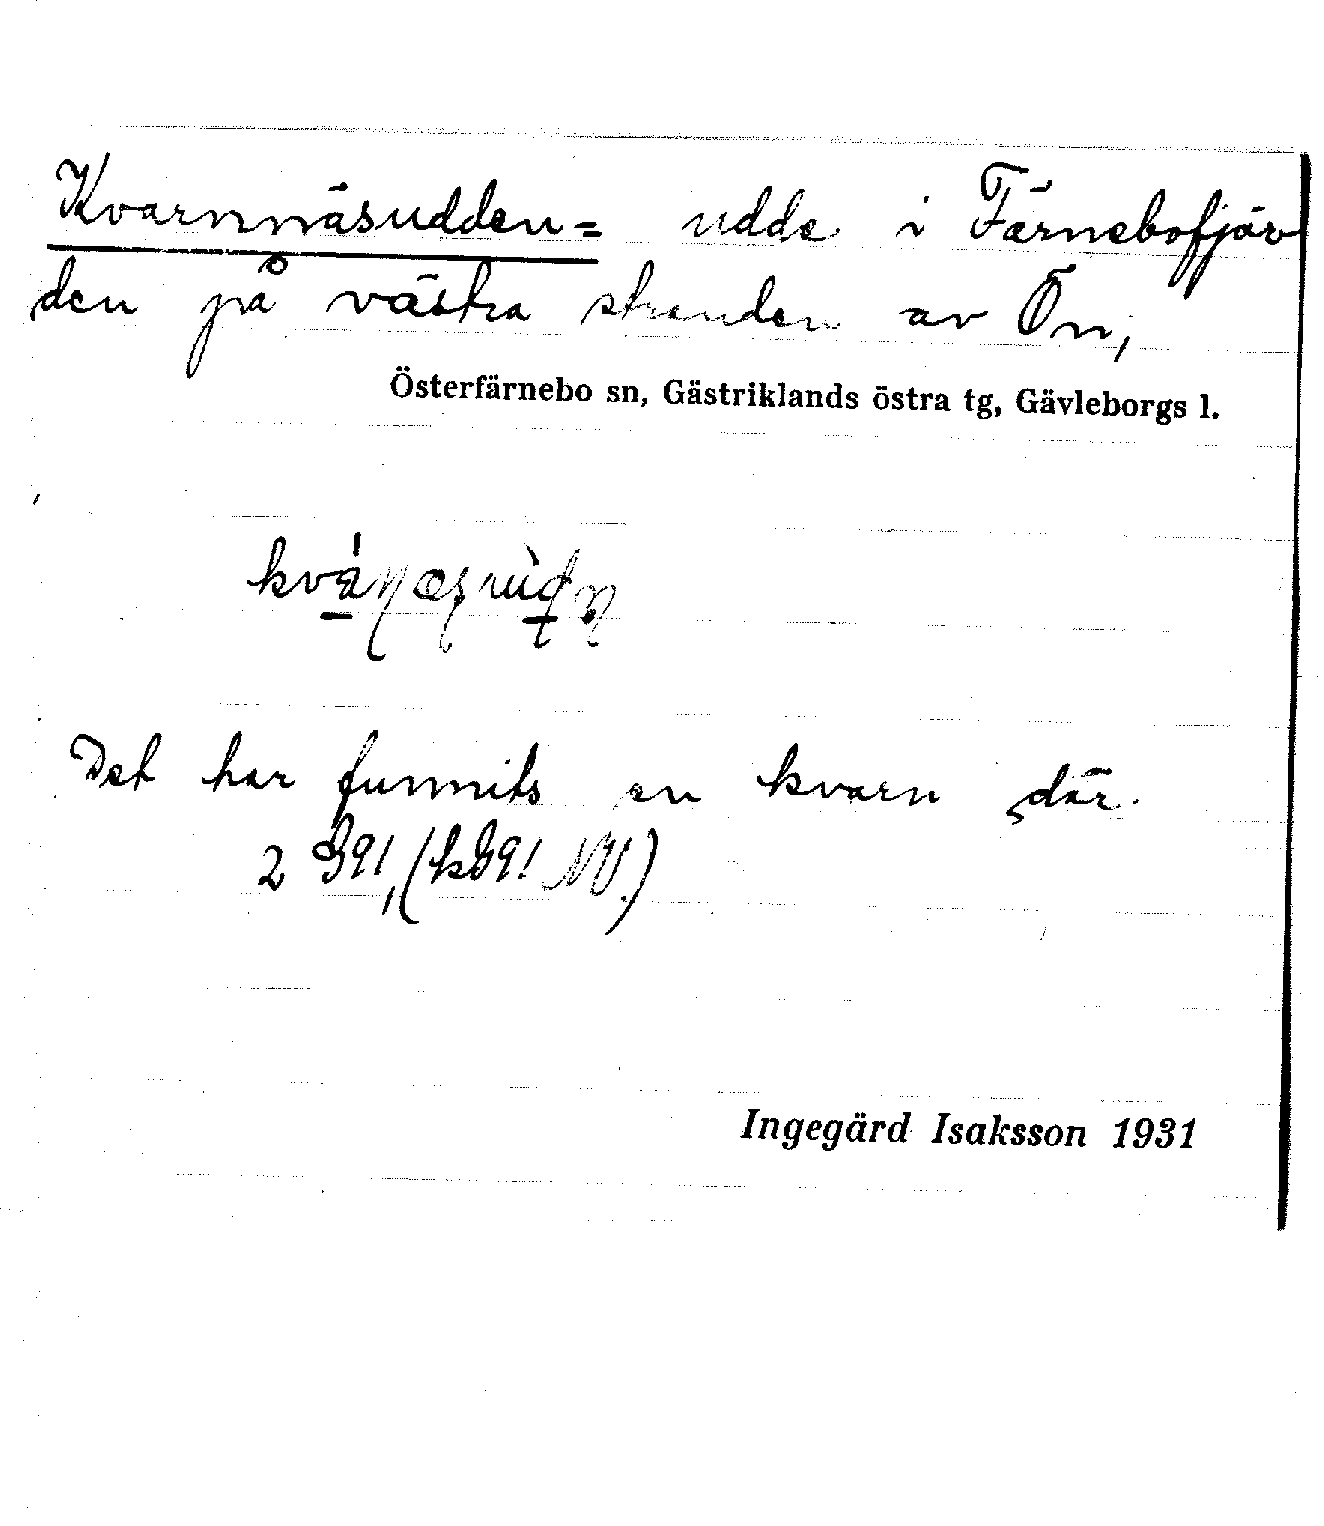 Kvarnnäsudden = udde i Färnebofjär
den på västra stranden av Ön,
Österfärnebo sn, Gästriklands östra tg, Gävleborgs l.
Det har funnits en kvarn där.
2 991, (k991 NV.)
Ingegärd Isaksson 1931